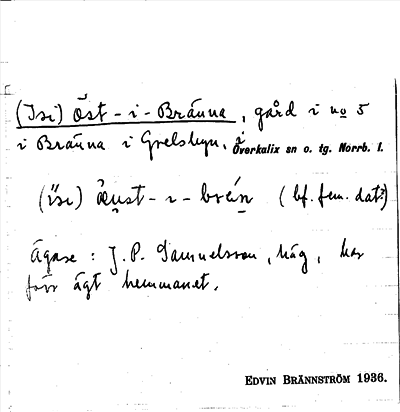 (Isi) Öst-i-Bränna, gård i no 5
i Bränna i Grelsbyn, i Överkalix sn o. tg. Norrb. l.
(isi) æust-ı-brén (bf. fem. dat?)
Ägare: J. P. Samuelsson, häg, har
förr ägt hemmanet.
EDVIN BRÄNNSTRÖM 1936.